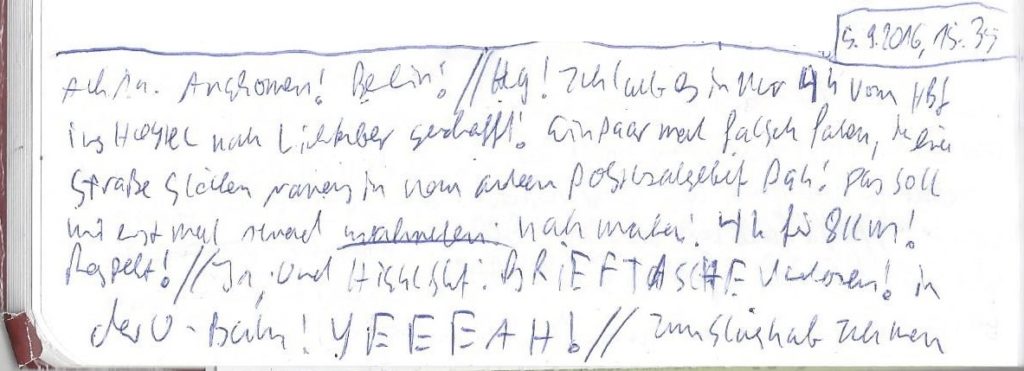 5.9.2016, 15.35
Ach ja. Angkommen! Berlin! // Hey! Ich hab es in nur 4h vom Hbf
ins Hostel nach Lichtenber geschafft! Ein paar mal falsch fahren, in eine
Straße gleichen namens in nem anderen Postleitzahlgebiet Das soll
mir erst mal jemand nachmachen! 4h für 8km!
Respekt! // Ja, und Highlight: BRIEFTASCHE verloren! in
der U-Bahn! YEEEEAH! // zum Glück hab ich meinen